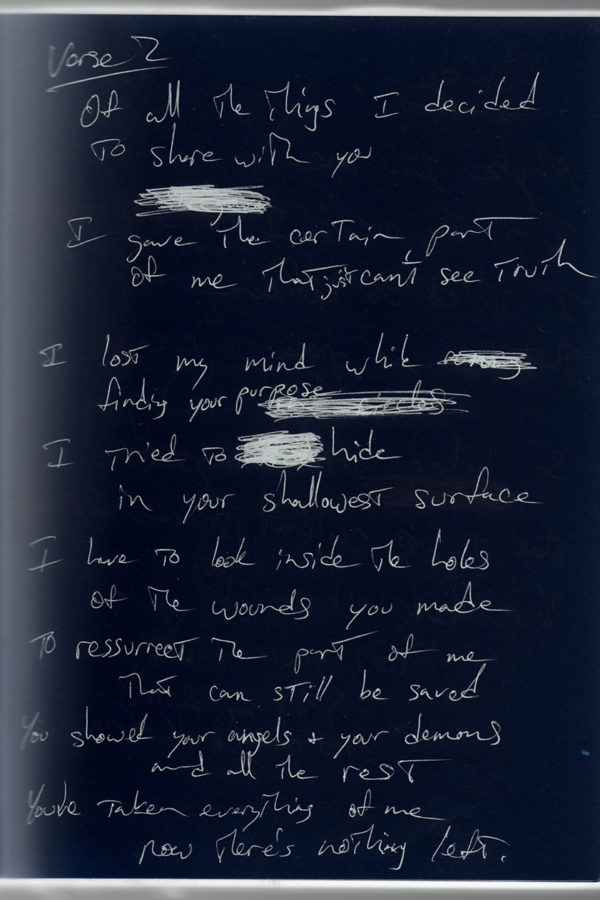 Verse 2
Of all the things I decided
To share with you
I gave the certain part
of me that just can't see truth
I lost my mind while
finding your purpose
I tried to hide
in your shallowest surface
I have to look inside the holes
of the wounds you made
To ressurrect the part of me
That can still be saved
You showed your angels + your demons
and all the rest
You've taken everything of me
now there's nothing left.